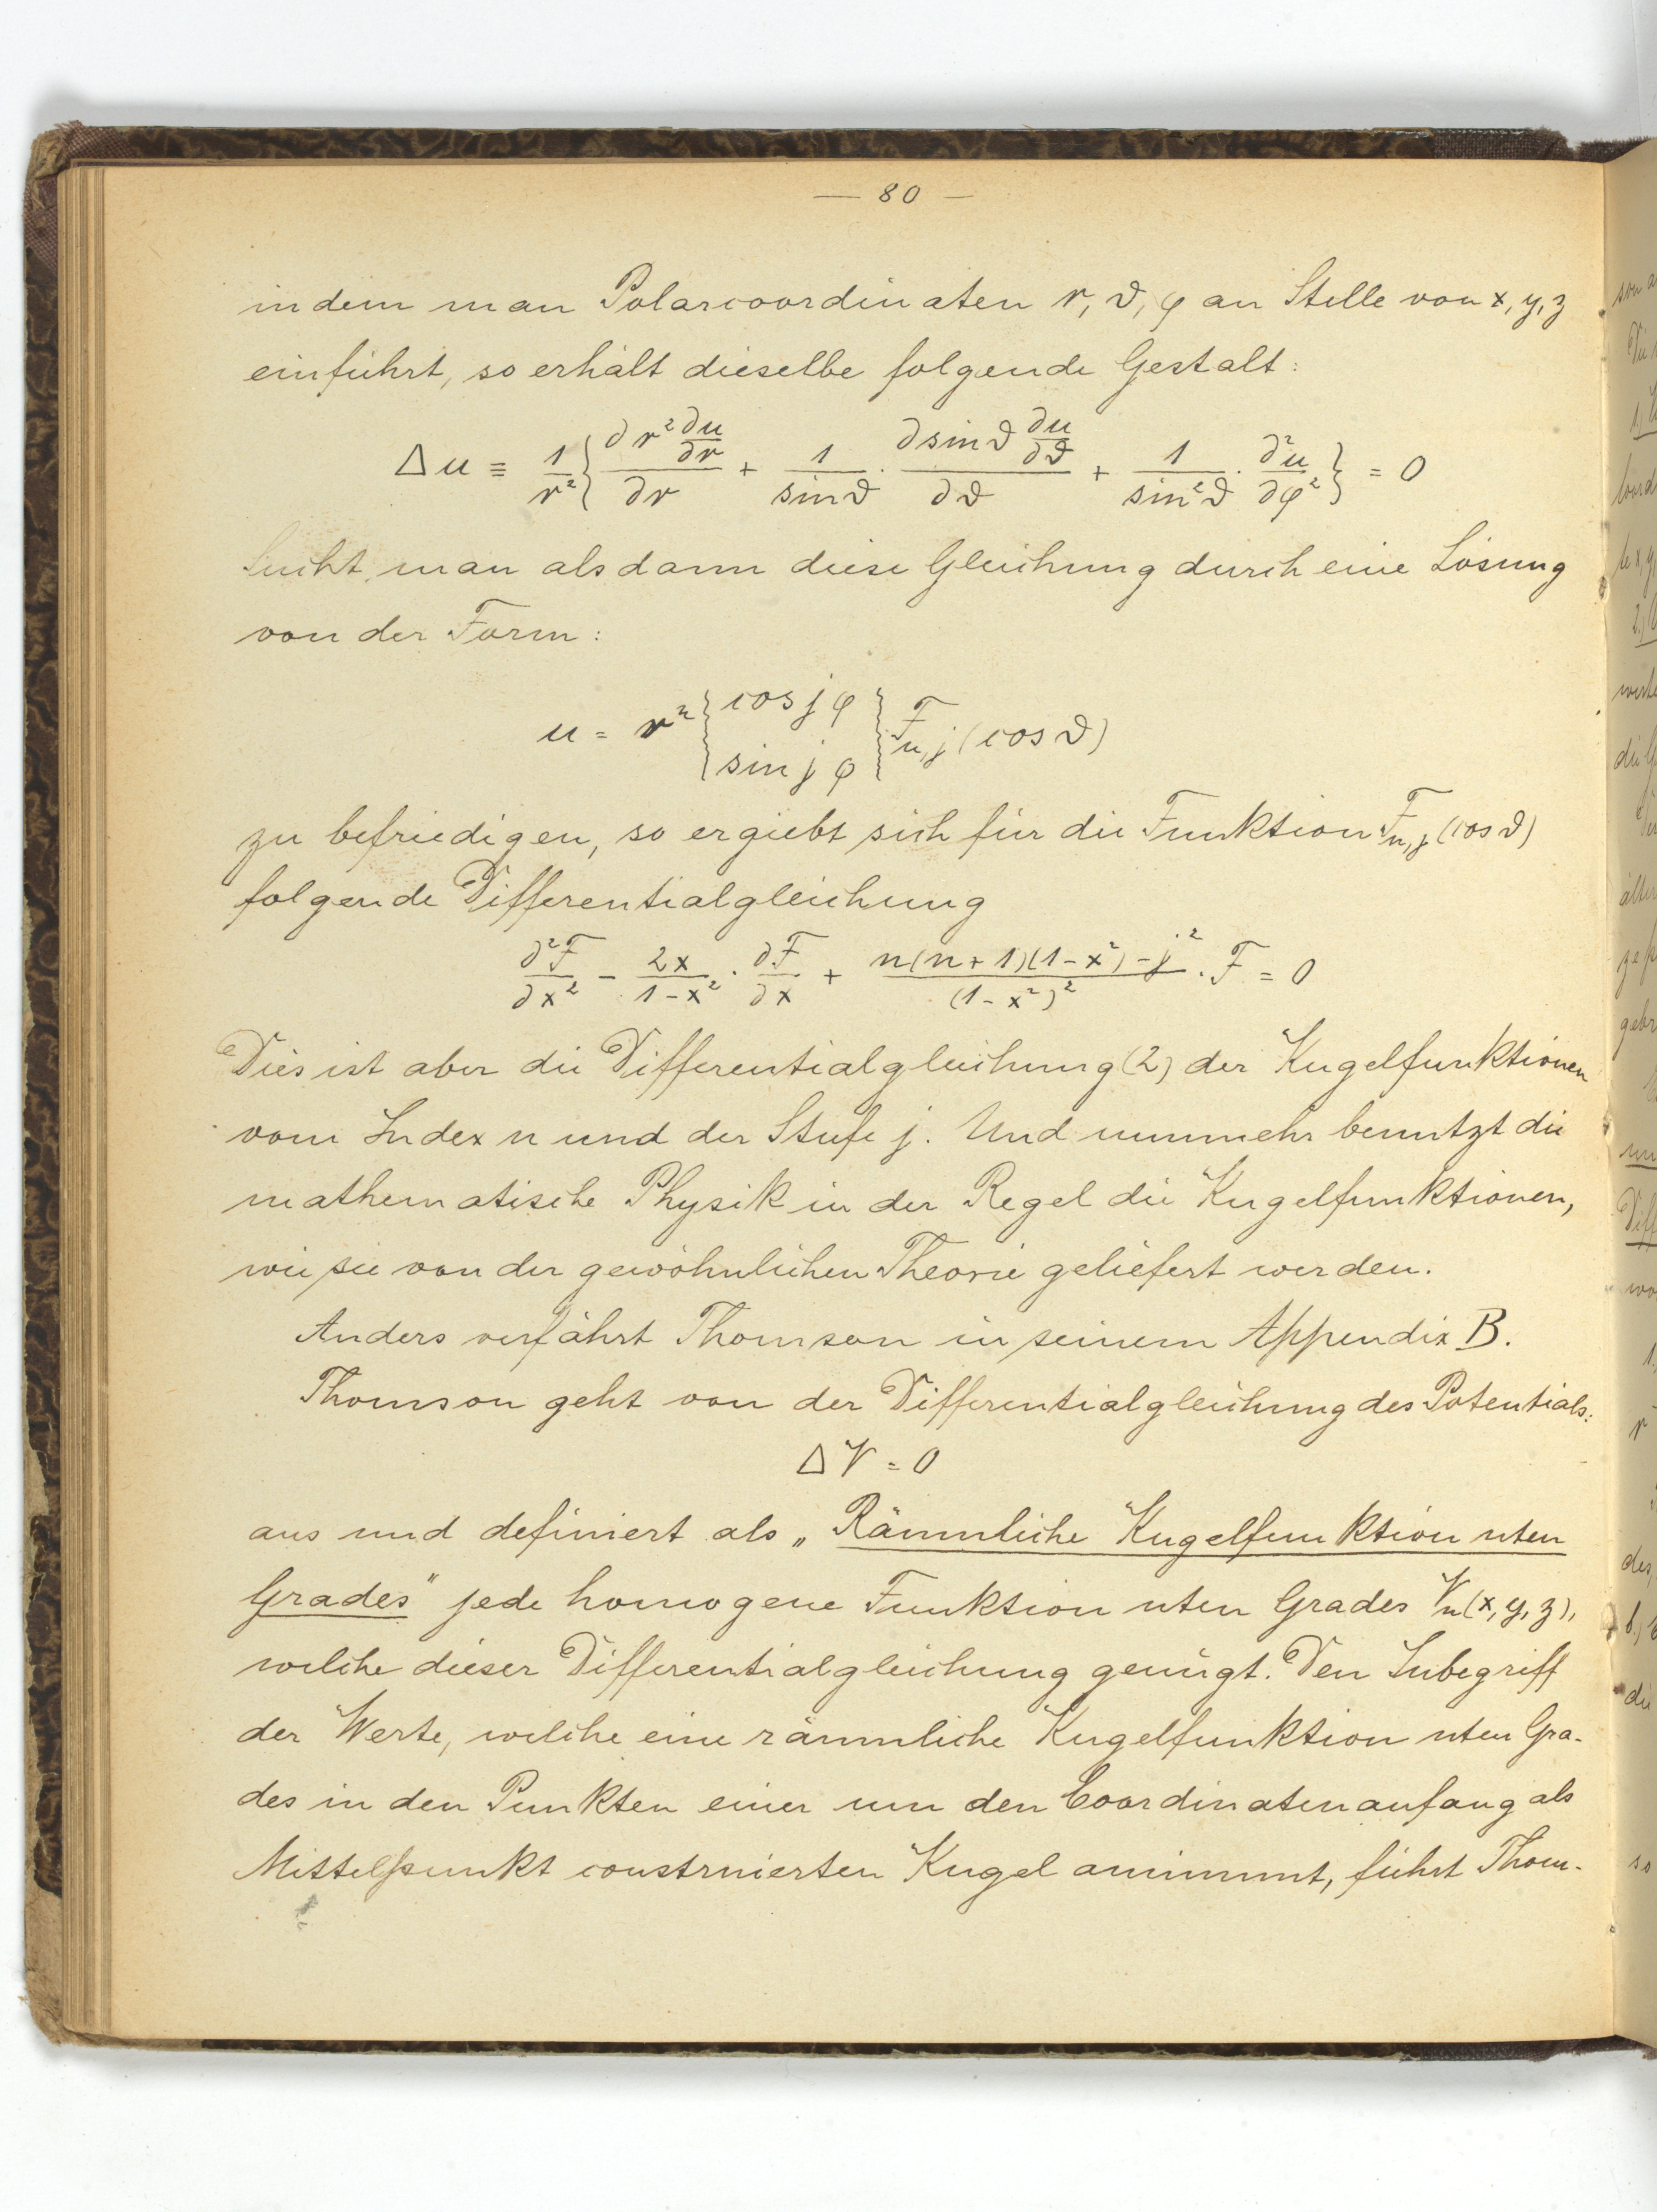 — 80 —
indem man Polarcoordinaten r, ϑ, φ an Stelle von x, y, z
einführt, so erhält dieselbe folgende Gestalt:
Δu ≡ 1/r² { ∂ r² ∂u/∂r / ∂r + 1/sin ϑ · ∂ sin ϑ ∂u/∂ϑ / ∂ϑ + 1/sin² ϑ · ∂²u/∂φ² } = 0
Sucht man alsdann diese Gleichung durch eine Lösung
von der Form:
u = rⁿ { cos j φ / sin j φ } F_{n,j} (cos ϑ)
zu befriedigen, so ergiebt sich für die Funktion F_{n,j} (cos ϑ)
folgende Differentialgleichung
∂²F/∂x² − 2x/(1−x²) · ∂F/∂x + (n(n+1)(1−x²)−j²)/(1−x²)² · F = 0
Dies ist aber die Differentialgleichung (2) der Kugelfunktionen
vom Index n und der Stufe j. Und nunmehr benutzt die
mathematische Physik in der Regel die Kugelfunktionen,
wie sie von der gewöhnlichen Theorie geliefert werden.
Anders verfährt Thomson in seinem Appendix B.
Thomson geht von der Differentialgleichung des Potentials:
ΔV = 0
aus und definiert als „Räumliche Kugelfunktion nten
Grades" jede homogene Funktion nten Grades Vₙ(x, y, z),
welche dieser Differentialgleichung genügt. Den Inbegriff
der Werte, welche eine räumliche Kugelfunktion nten Gra-
des in den Punkten einer um den Coordinatenanfang als
Mittelpunkt construierten Kugel annimmt, führt Thom-